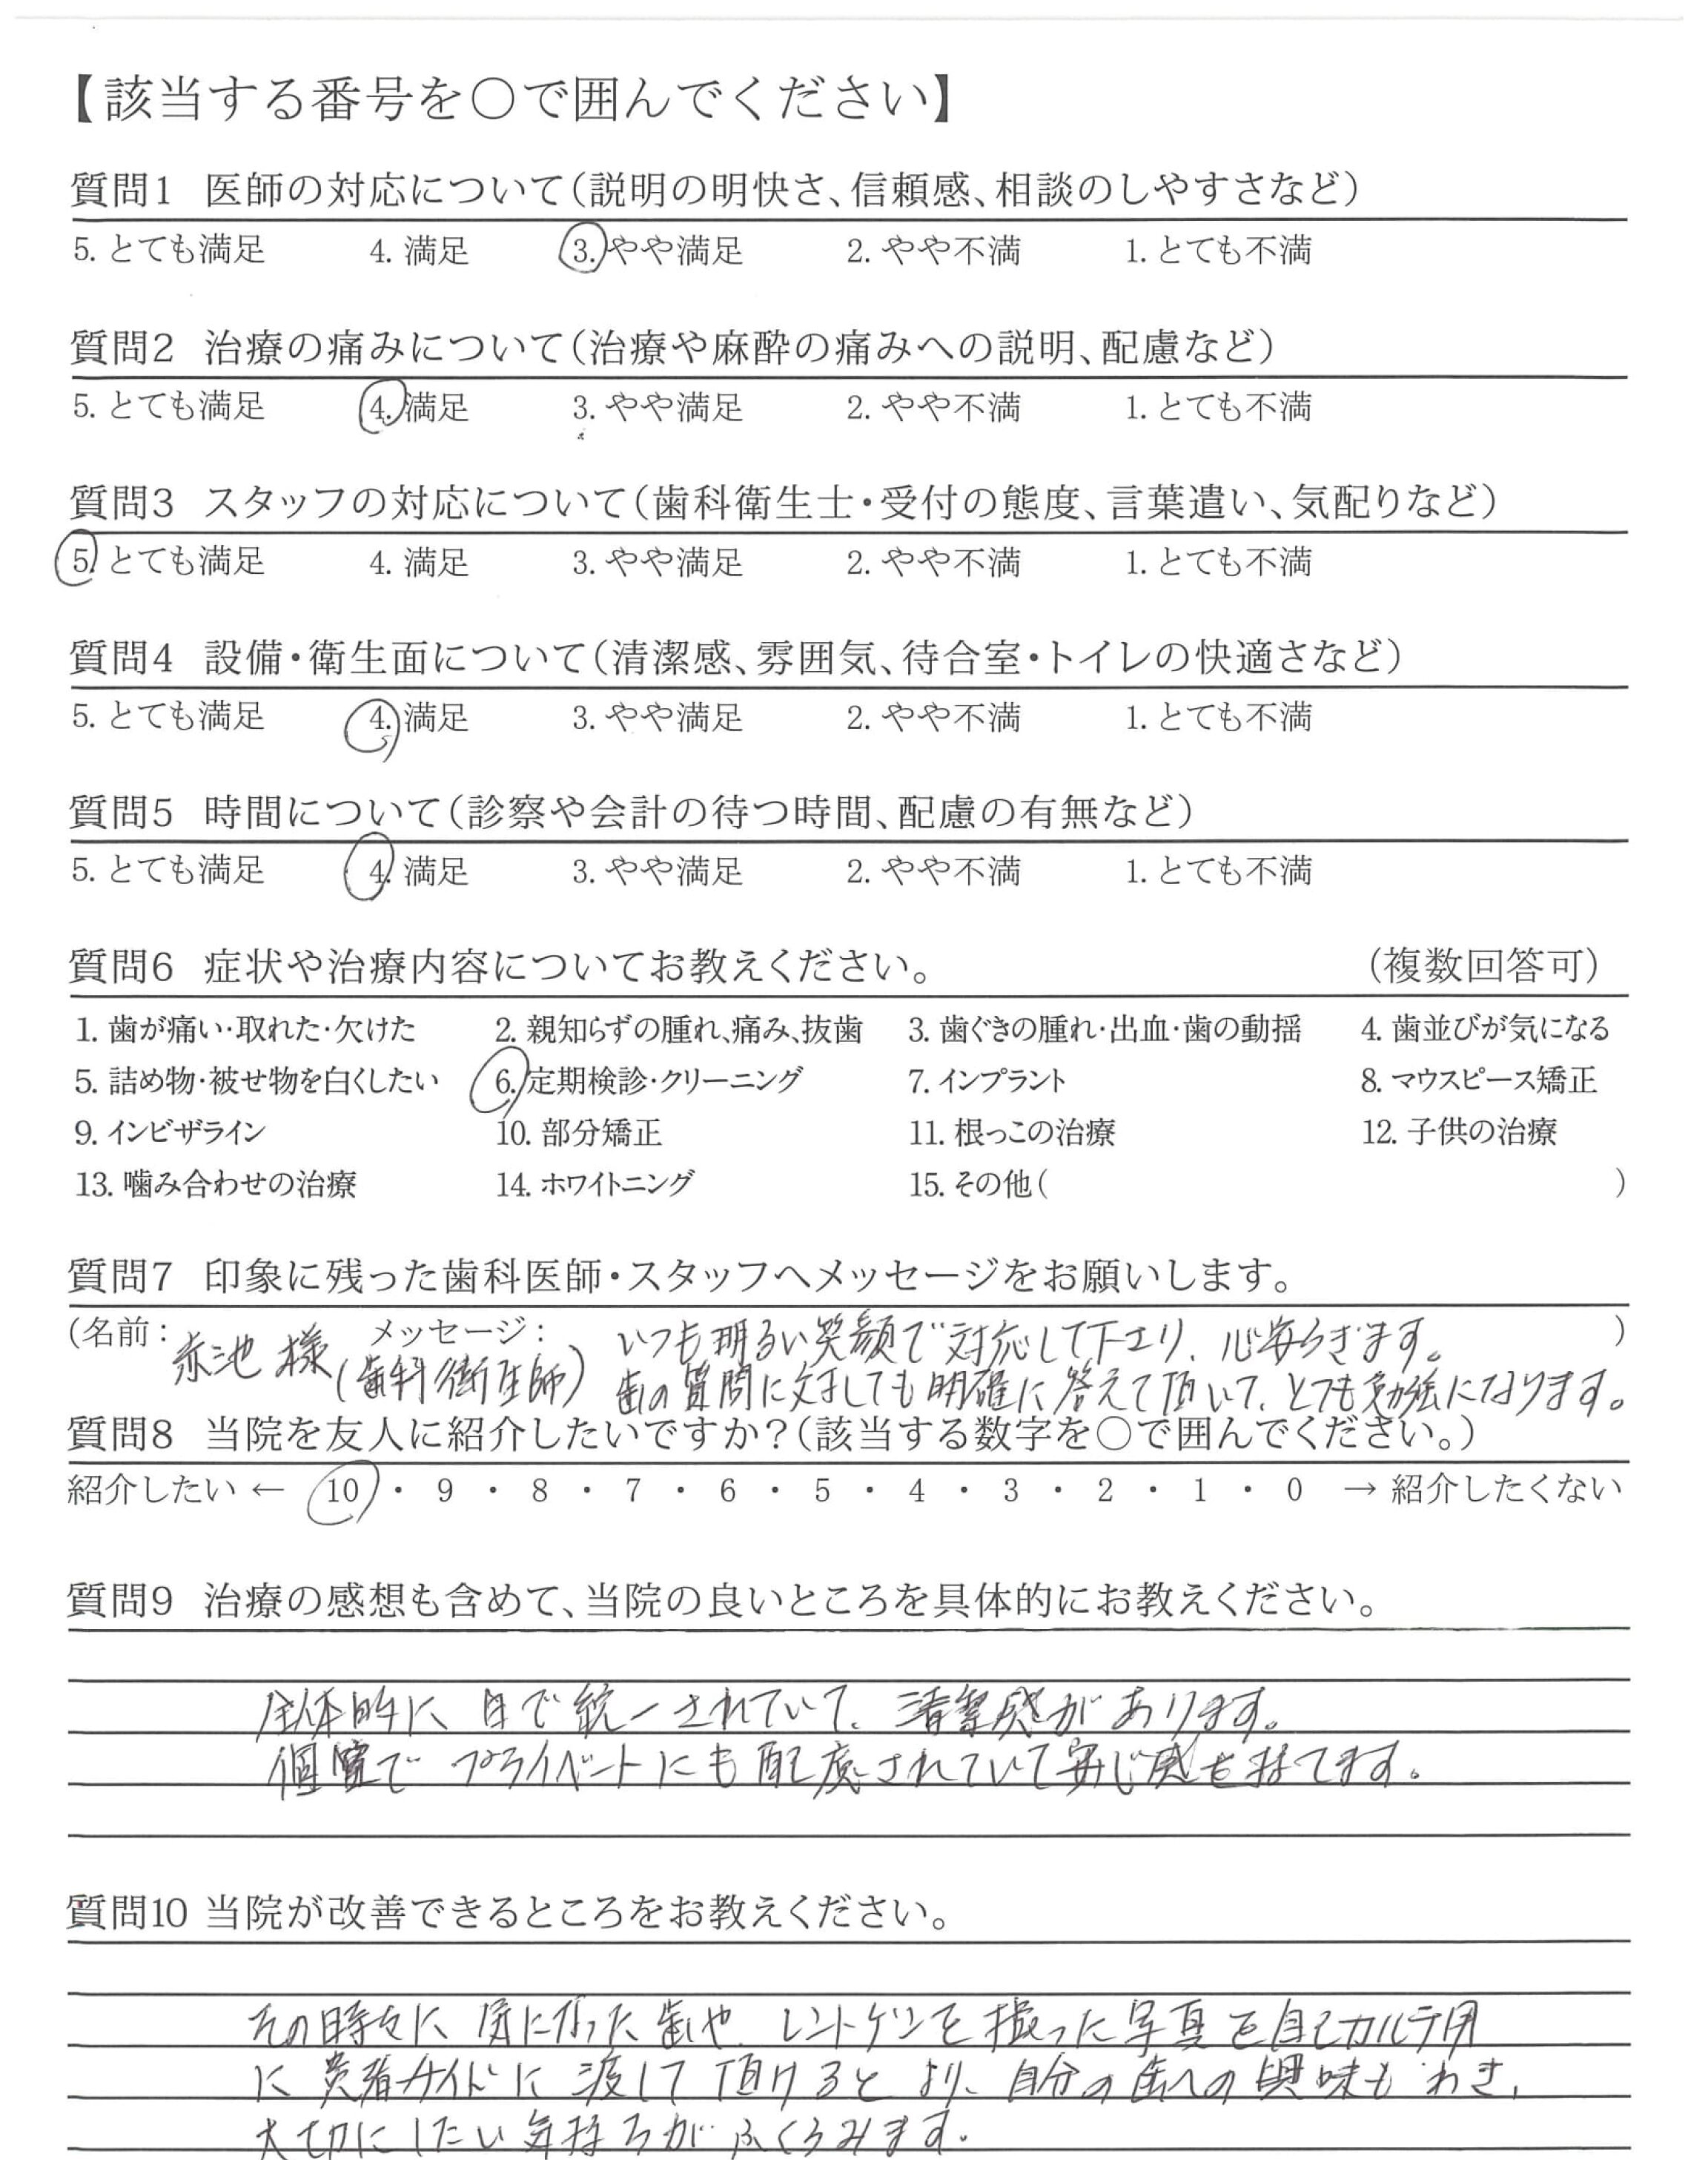 【該当する番号を○で囲んでください】
質問1 医師の対応について(説明の明快さ、信頼感、相談のしやすさなど)
5. とても満足 4. 満足 3. やや満足 2. やや不満 1. とても不満
質問2 治療の痛みについて(治療や麻酔の痛みへの説明、配慮など)
5. とても満足 4. 満足 3. やや満足 2. やや不満 1. とても不満
質問3 スタッフの対応について(歯科衛生士・受付の態度、言葉遣い、気配りなど)
5. とても満足 4. 満足 3. やや満足 2. やや不満 1. とても不満
質問4 設備・衛生面について(清潔感、雰囲気、待合室・トイレの快適さなど)
5. とても満足 4. 満足 3. やや満足 2. やや不満 1. とても不満
質問5 時間について(診察や会計の待つ時間、配慮の有無など)
5. とても満足 4. 満足 3. やや満足 2. やや不満 1. とても不満
質問6 症状や治療内容についてお教えください。 (複数回答可)
1. 歯が痛い・取れた・欠けた 2. 親知らずの腫れ、痛み、抜歯 3. 歯ぐきの腫れ・出血・歯の動揺 4. 歯並びが気になる
5. 詰め物・被せ物を白くしたい 6. 定期検診・クリーニング 7. インプラント 8. マウスピース矯正
9. インビザライン 10. 部分矯正 11. 根っこの治療 12. 子供の治療
13. 噛み合わせの治療 14. ホワイトニング 15. その他( )
質問7 印象に残った歯科医師・スタッフへメッセージをお願いします。
(名前: 赤池 様 メッセージ: いつも明るい笑顔で対応して下さり、心安らぎます。 )
(歯科衛生師) 歯の質問に対しても明確に答えて頂いて、とても勉強になります。
質問8 当院を友人に紹介したいですか?(該当する数字を○で囲んでください。)
紹介したい ← 10 ・ 9 ・ 8 ・ 7 ・ 6 ・ 5 ・ 4 ・ 3 ・ 2 ・ 1 ・ 0 → 紹介したくない
質問9 治療の感想も含めて、当院の良いところを具体的にお教えください。
全体的に 白で統一されていて、清潔感があります。
個室で プライベートにも配慮されていて安心感も持てます。
質問10 当院が改善できるところをお教えください。
その時々に 気になった歯や レントゲンを撮った写真を自己カルテ用
に 患者サイドに渡して頂けると より、自分の歯への興味もわき、
大切にしたい気持ちがふくらみます。